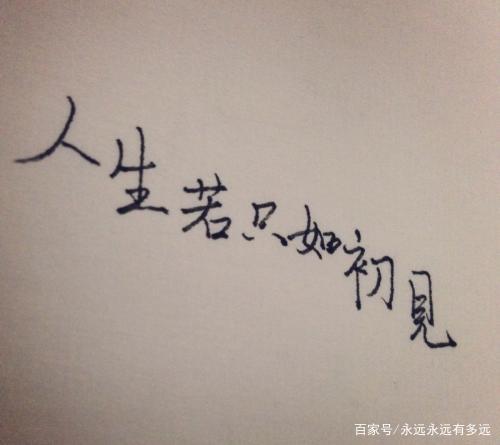 人生若只如初見
百家号/永远永远有多远